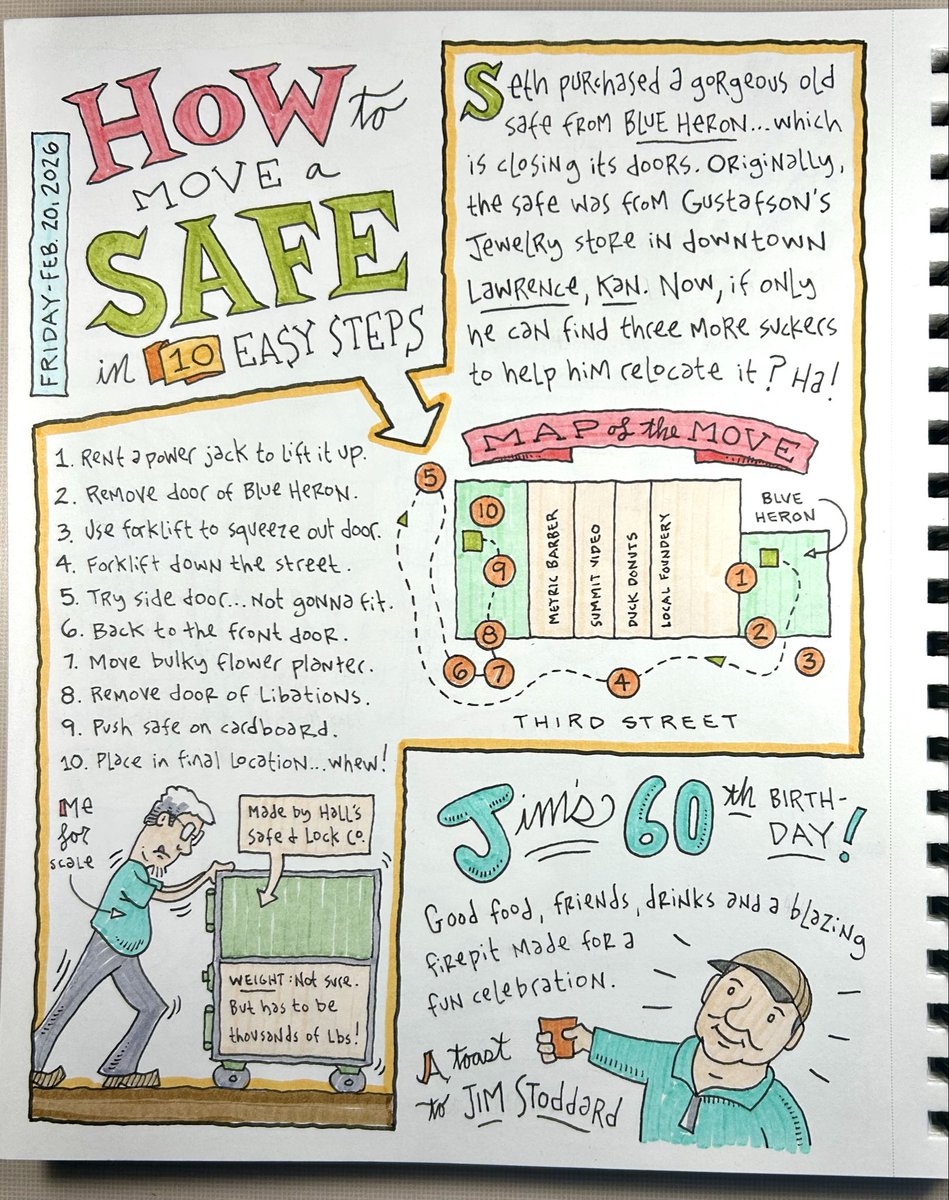 FRIDAY-FEB. 20, 2026
HOW to
MOVE a
SAFE
in 10 EASY STEPS
Seth purchased a gorgeous old
safe from BLUE HERON...which
is closing its doors. Originally,
the safe was from Gustafson's
Jewelry store in downtown
Lawrence, Kan. Now, if only
he can find three more suckers
to help him relocate it? Ha!
1. Rent a power jack to lift it up.
2. Remove door of Blue Heron.
3. Use forklift to squeeze out door.
4. Forklift down the street.
5. Try side door...not gonna fit.
6. Back to the front door.
7. Move bulky flower planter.
8. Remove door of Libations.
9. Push safe on cardboard.
10. Place in final location...whew!
MAP of the MOVE
BLUE
HERON
METRIC BARBER
SUMMIT VIDEO
DUCK DONUTS
LOCAL FOUNDERY
5
10
9
8
6
7
4
1
2
3
THIRD STREET
Me
for
scale
Made by Hall's
Safe & Lock Co.
WEIGHT: Not sure.
But has to be
thousands of lbs!
Jim's 60th BIRTH-
DAY!
Good food, friends, drinks and a blazing
firepit made for a
fun celebration.
A toast
to JIM Stoddard